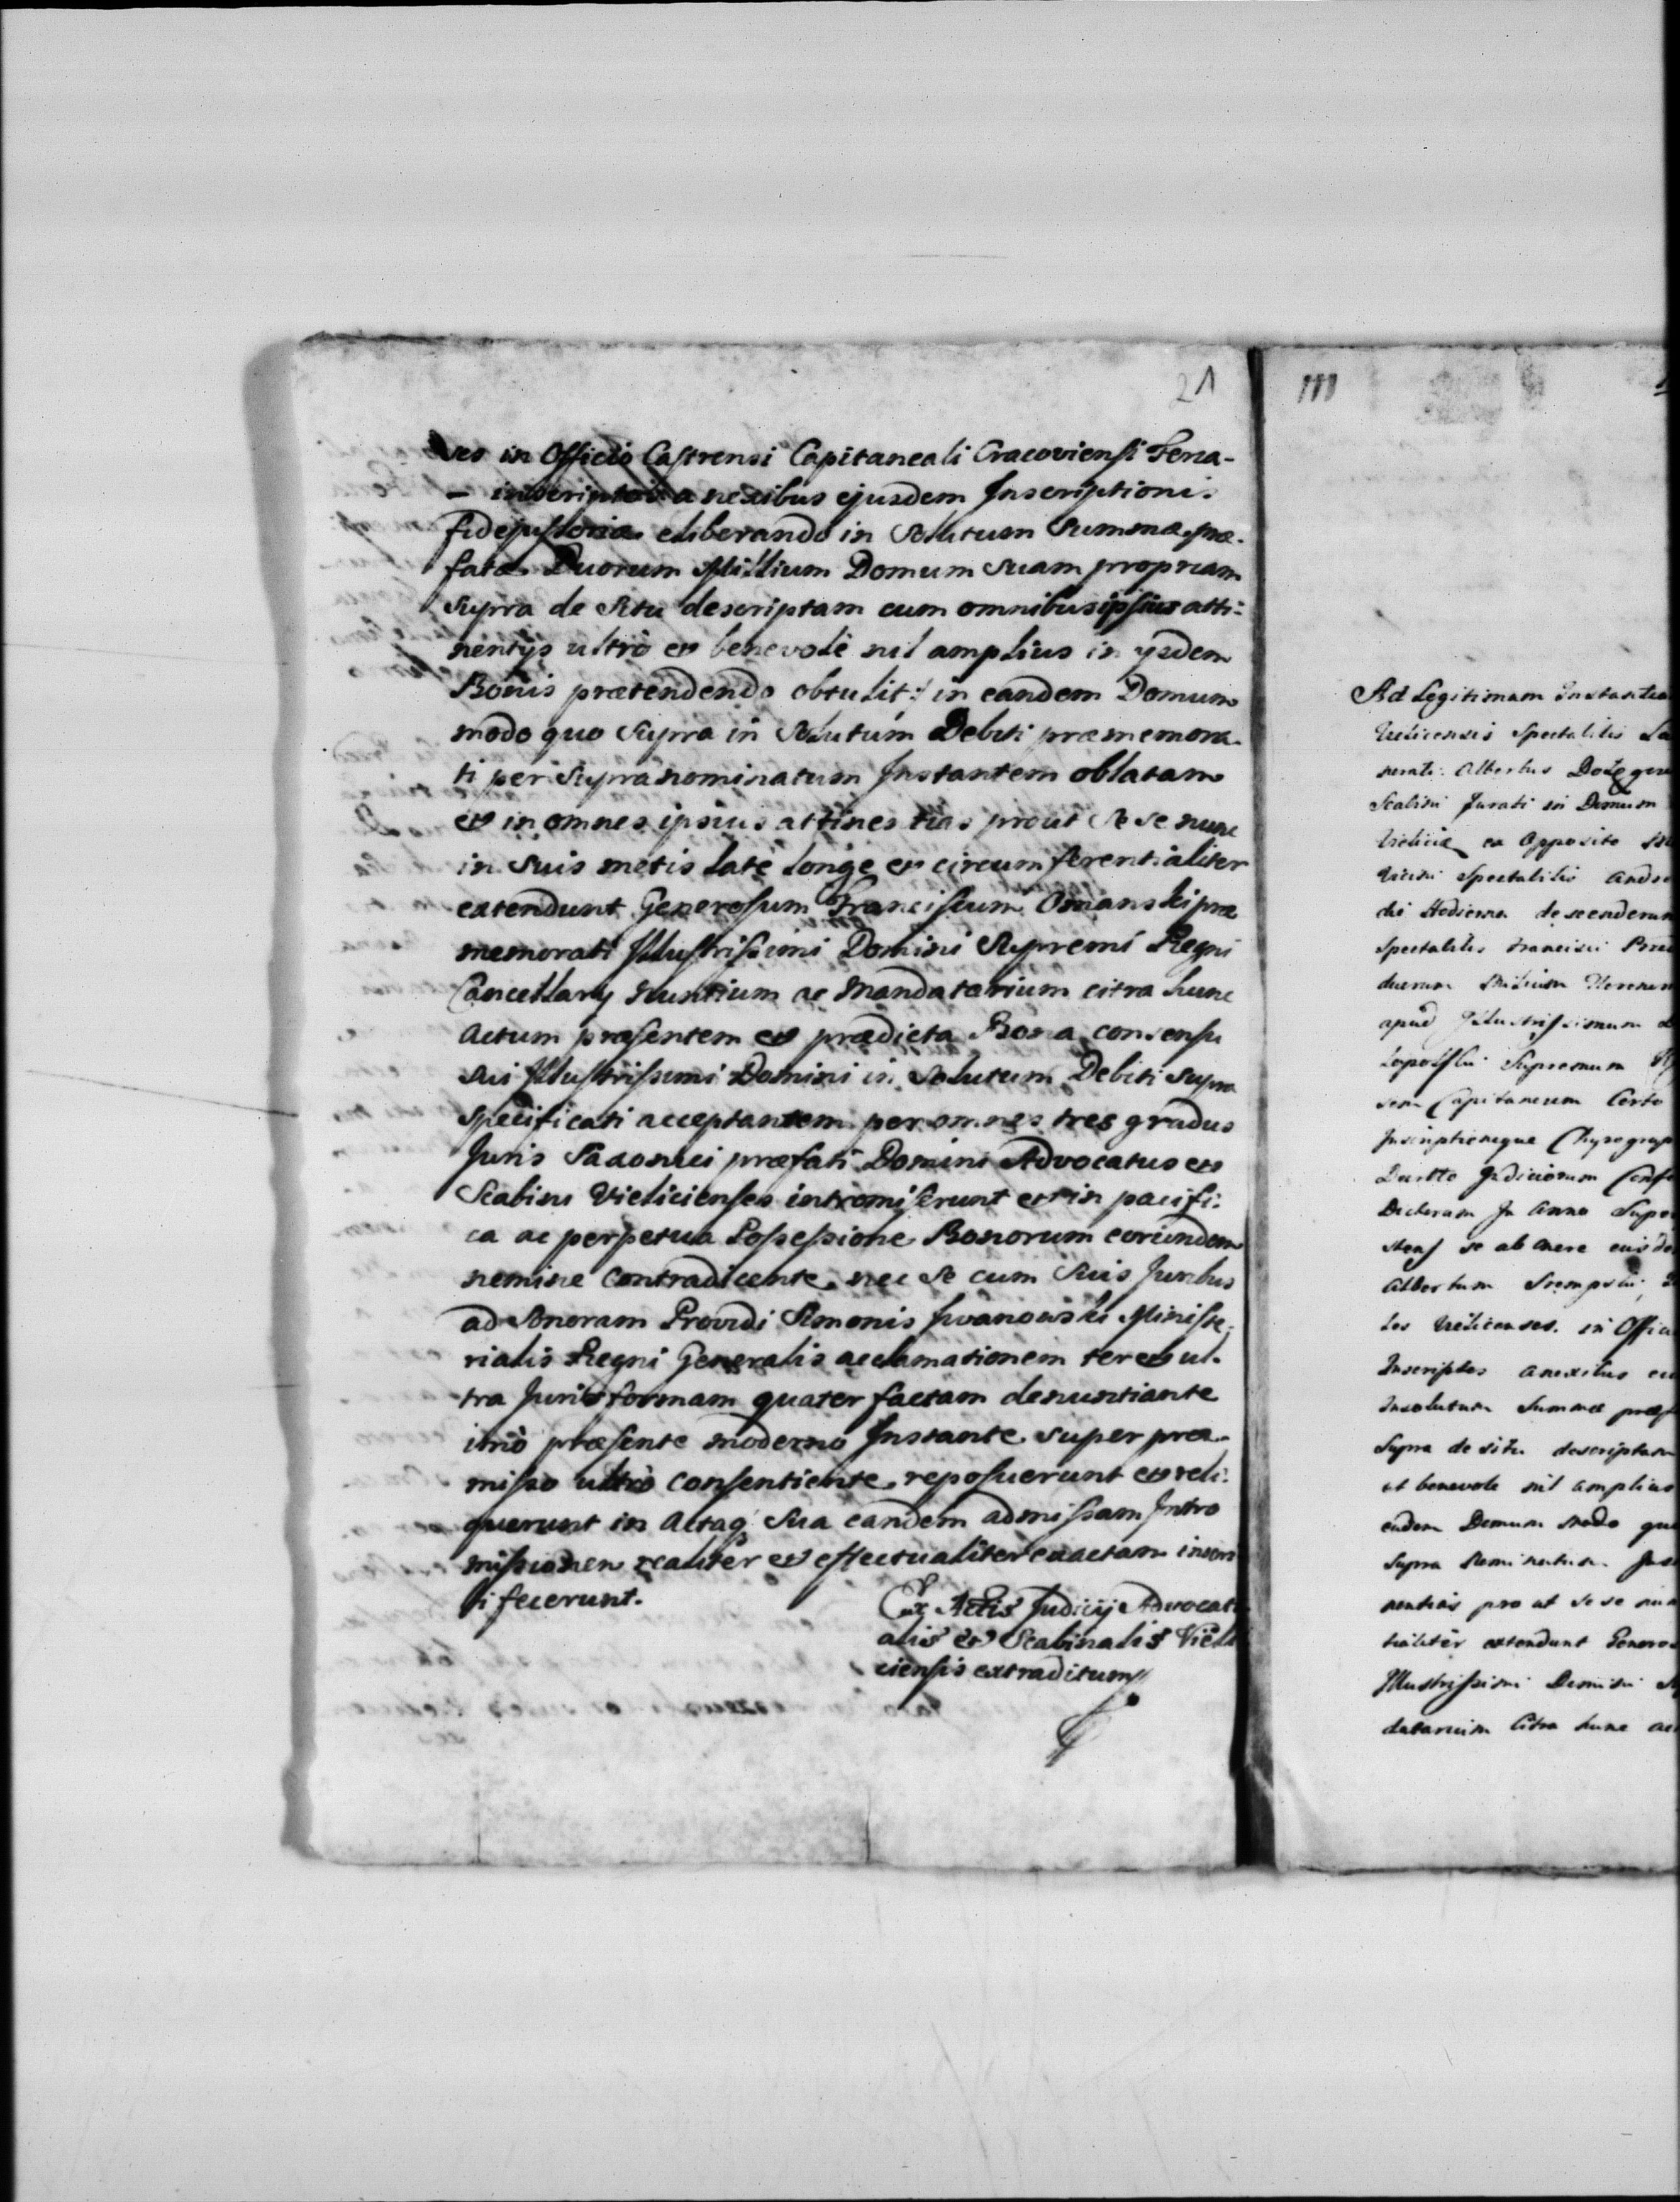 21
ces in Officio Castrensi Capitaneali Cracoviensi Feria-
- inscriptos a nexibus ejusdem Inscriptionis
fidejussoriae eliberando in Solutum Summae prae-
fatae Duorum Millium Domum Suam propriam
Supra de Situ descriptam cum omnibus ipsius atti:
nentijs ultrò et benevolè nil amplius in ysdem
Bonis praetendendo obtulit: in eandem Domum
modo quo Supra in Solutum Debiti praememora-
ti per Supranominatum Instantem oblatam
et in omnes ipsius attinentias prout Se se nunc
in Suis metis latè longè et circumferentialiter
extendunt Generosum Franciscum Omanski prae
memorati Illustrissimi Domini Supremi Regni
Cancellary Nuntium ac Mandatarium citra hunc
Actum praesentem et praedicta Bona consensu
Sui Illustrissimi Domini in Solutum Debiti Supra
Specificati acceptantem per omnes tres gradus
Juris Saxonici praefati Domini Advocatus et
Scabini Vielicienses intromiserunt et in pacifi:
ca ac perpetua Possessione Bonorum eorundem
nemine Contradicente nec Se cum Suis Juribus
ad Sonoram Providi Simonis Iwanowski Ministe:
rialis Regni Generalis acclamationem ter et ul-
tra Juris formam quater factam denuntiante
imò praesente moderno Instante super prae-
misso ultrò consentiente reposuerunt et reli:
querunt in Actaq Sua eandem admissam Intro
missionem realiter et effectualiter exactam inscri
bi fecerunt.
Ex Actis Judicij Advocati
alis et Scabinalis Vieli
ciensis extraditum
Ad Legitimam Instantia
Vielicensis Spectabilis La
nerati Albertus
Scabini Jurati in Domum
Vieliciae ex Opposito
Vicini Spectabilis Andre
chi Hodierna descenderun
Spectabilis Francisci
duorum Millium Florenor
apud Illustrissimum
Supremum
sem Capitaneum Certo
Inscriptioneque Chyrograp
Judiciorum
In Anno Supr
se ab onere eiusde
Albertum
les Vielicenses in Offici
Inscriptos a nexibus eiu
Insolutum Summae praef
Supra de situ descriptam
et benevole nil amplius
eadem Domum Modo quo
Supra Nominatum Ins
nentias pro ut se se nun
tialiter extendunt Genero
Illustrissimi Domini Su
datarium Citra hunc ac